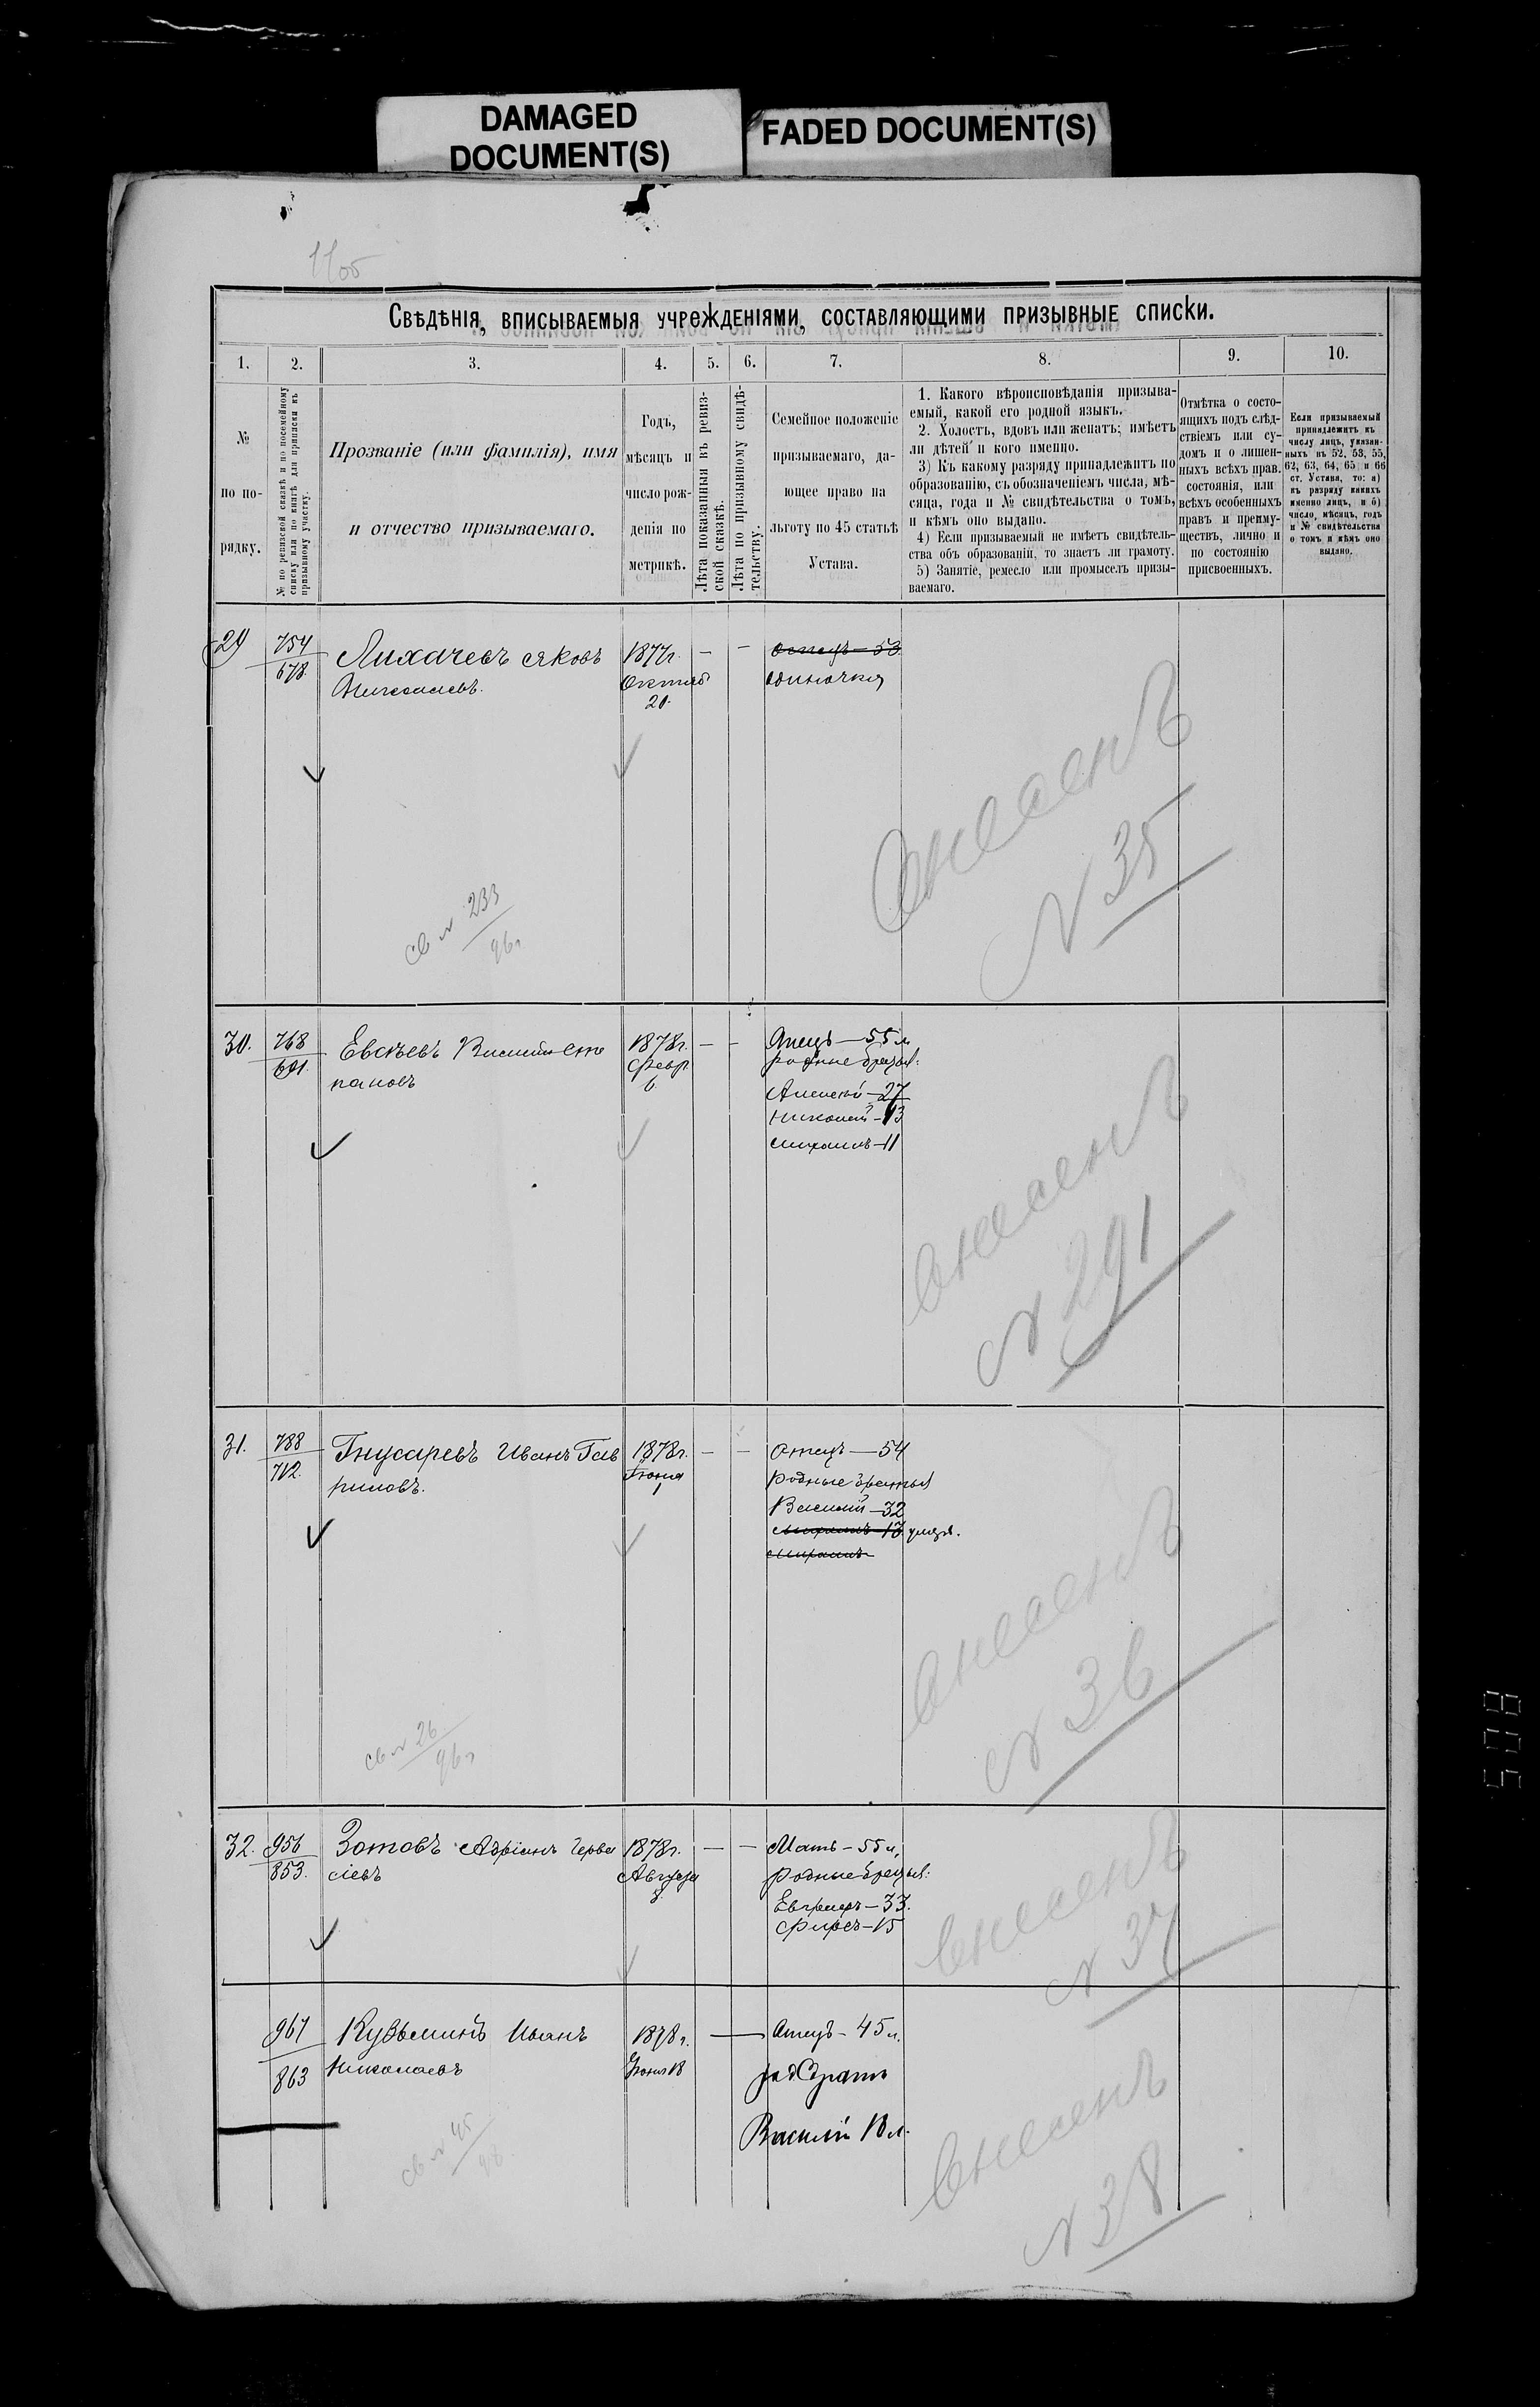 DAMAGED
DOCUMENT(S)
FADED DOCUMENT(S)
11об
Свѣдѣнія, вписываемыя учрежденіями, составляющими призывные списки.
1. 2. 3. 4. 5. 6. 7. 8. 9. 10.
№
по по-
рядку.
№ по ревизской сказкѣ и по посемейному
списку или по книгѣ для приписки къ
призывному участку.
Прозваніе (или фамилія), имя
и отчество призываемаго.
Годъ,
мѣсяцъ и
число рож-
денія по
метрикѣ.
Лѣта показанныя въ ревиз-
ской сказкѣ.
Лѣта по призывному свидѣ-
тельству.
Семейное положеніе
призываемаго, да-
ющее право на
льготу по 45 статьѣ
Устава.
1. Какого вѣроисповѣданія призыва-
емый, какой его родной языкъ.
2. Холостъ, вдовъ или женатъ; имѣетъ
ли дѣтей и кого именно.
3) Къ какому разряду принадлежитъ по
образованію, съ обозначеніемъ числа, мѣ-
сяца, года и № свидѣтельства о томъ,
и кѣмъ оно выдано.
4) Если призываемый не имѣетъ свидѣтель-
ства объ образованіи, то знаетъ ли грамоту.
5) Занятіе, ремесло или промыселъ призы-
ваемаго.
Отмѣтка о состо-
ящихъ подъ слѣд-
ствіемъ или су-
домъ и о лишен-
ныхъ всѣхъ прав.
состоянія, или
всѣхъ особенныхъ
правъ и преиму-
ществъ, лично и
по состоянію
присвоенныхъ.
Если призываемый
принадлежитъ къ
числу лицъ, указан-
ныхъ въ 52, 53, 55,
62, 63, 64, 65 и 66
ст. Устава, то: а)
къ разряду какихъ
именно лицъ, и б)
число, мѣсяцъ, годъ
и № свидѣтельства
о томъ и кѣмъ оно
выдано.
29 754 Лихачевъ Яковъ 1877г. — — отецъ — 53
678. Николаевъ. Октяб одиночка
20.
Внесенъ
№ 35
св № 233
96г
30. 768 Евсѣевъ Василій Сте 1878г. — — Отецъ — 55 л
691. пановъ Февр родные братья:
6. Алексѣй — 27
Николай — 13
Михаилъ — 11
Внесенъ
№ 291
31. 788 Гнусаревъ Иванъ Гав 1878г. — — Отецъ — 54
712. риловъ. Іюня родные братья
1 Василій — 32
Михаилъ — 13
Михаилъ
Внесенъ
№ 36
св № 26
96г
32. 956 Зотовъ Адріанъ Герва 1878г. — — Мать — 55 л,
853. сіевъ Августа родные братья:
8. Евграфъ — 33.
Фирсъ — 15
Внесенъ
№ 37
967 Кузьминъ Иванъ 1878г. — Отецъ — 45 л.
863 Николаевъ Іюня 18 род братъ
Василій 18 л.
св № 45
98
Внесенъ
№ 38
508